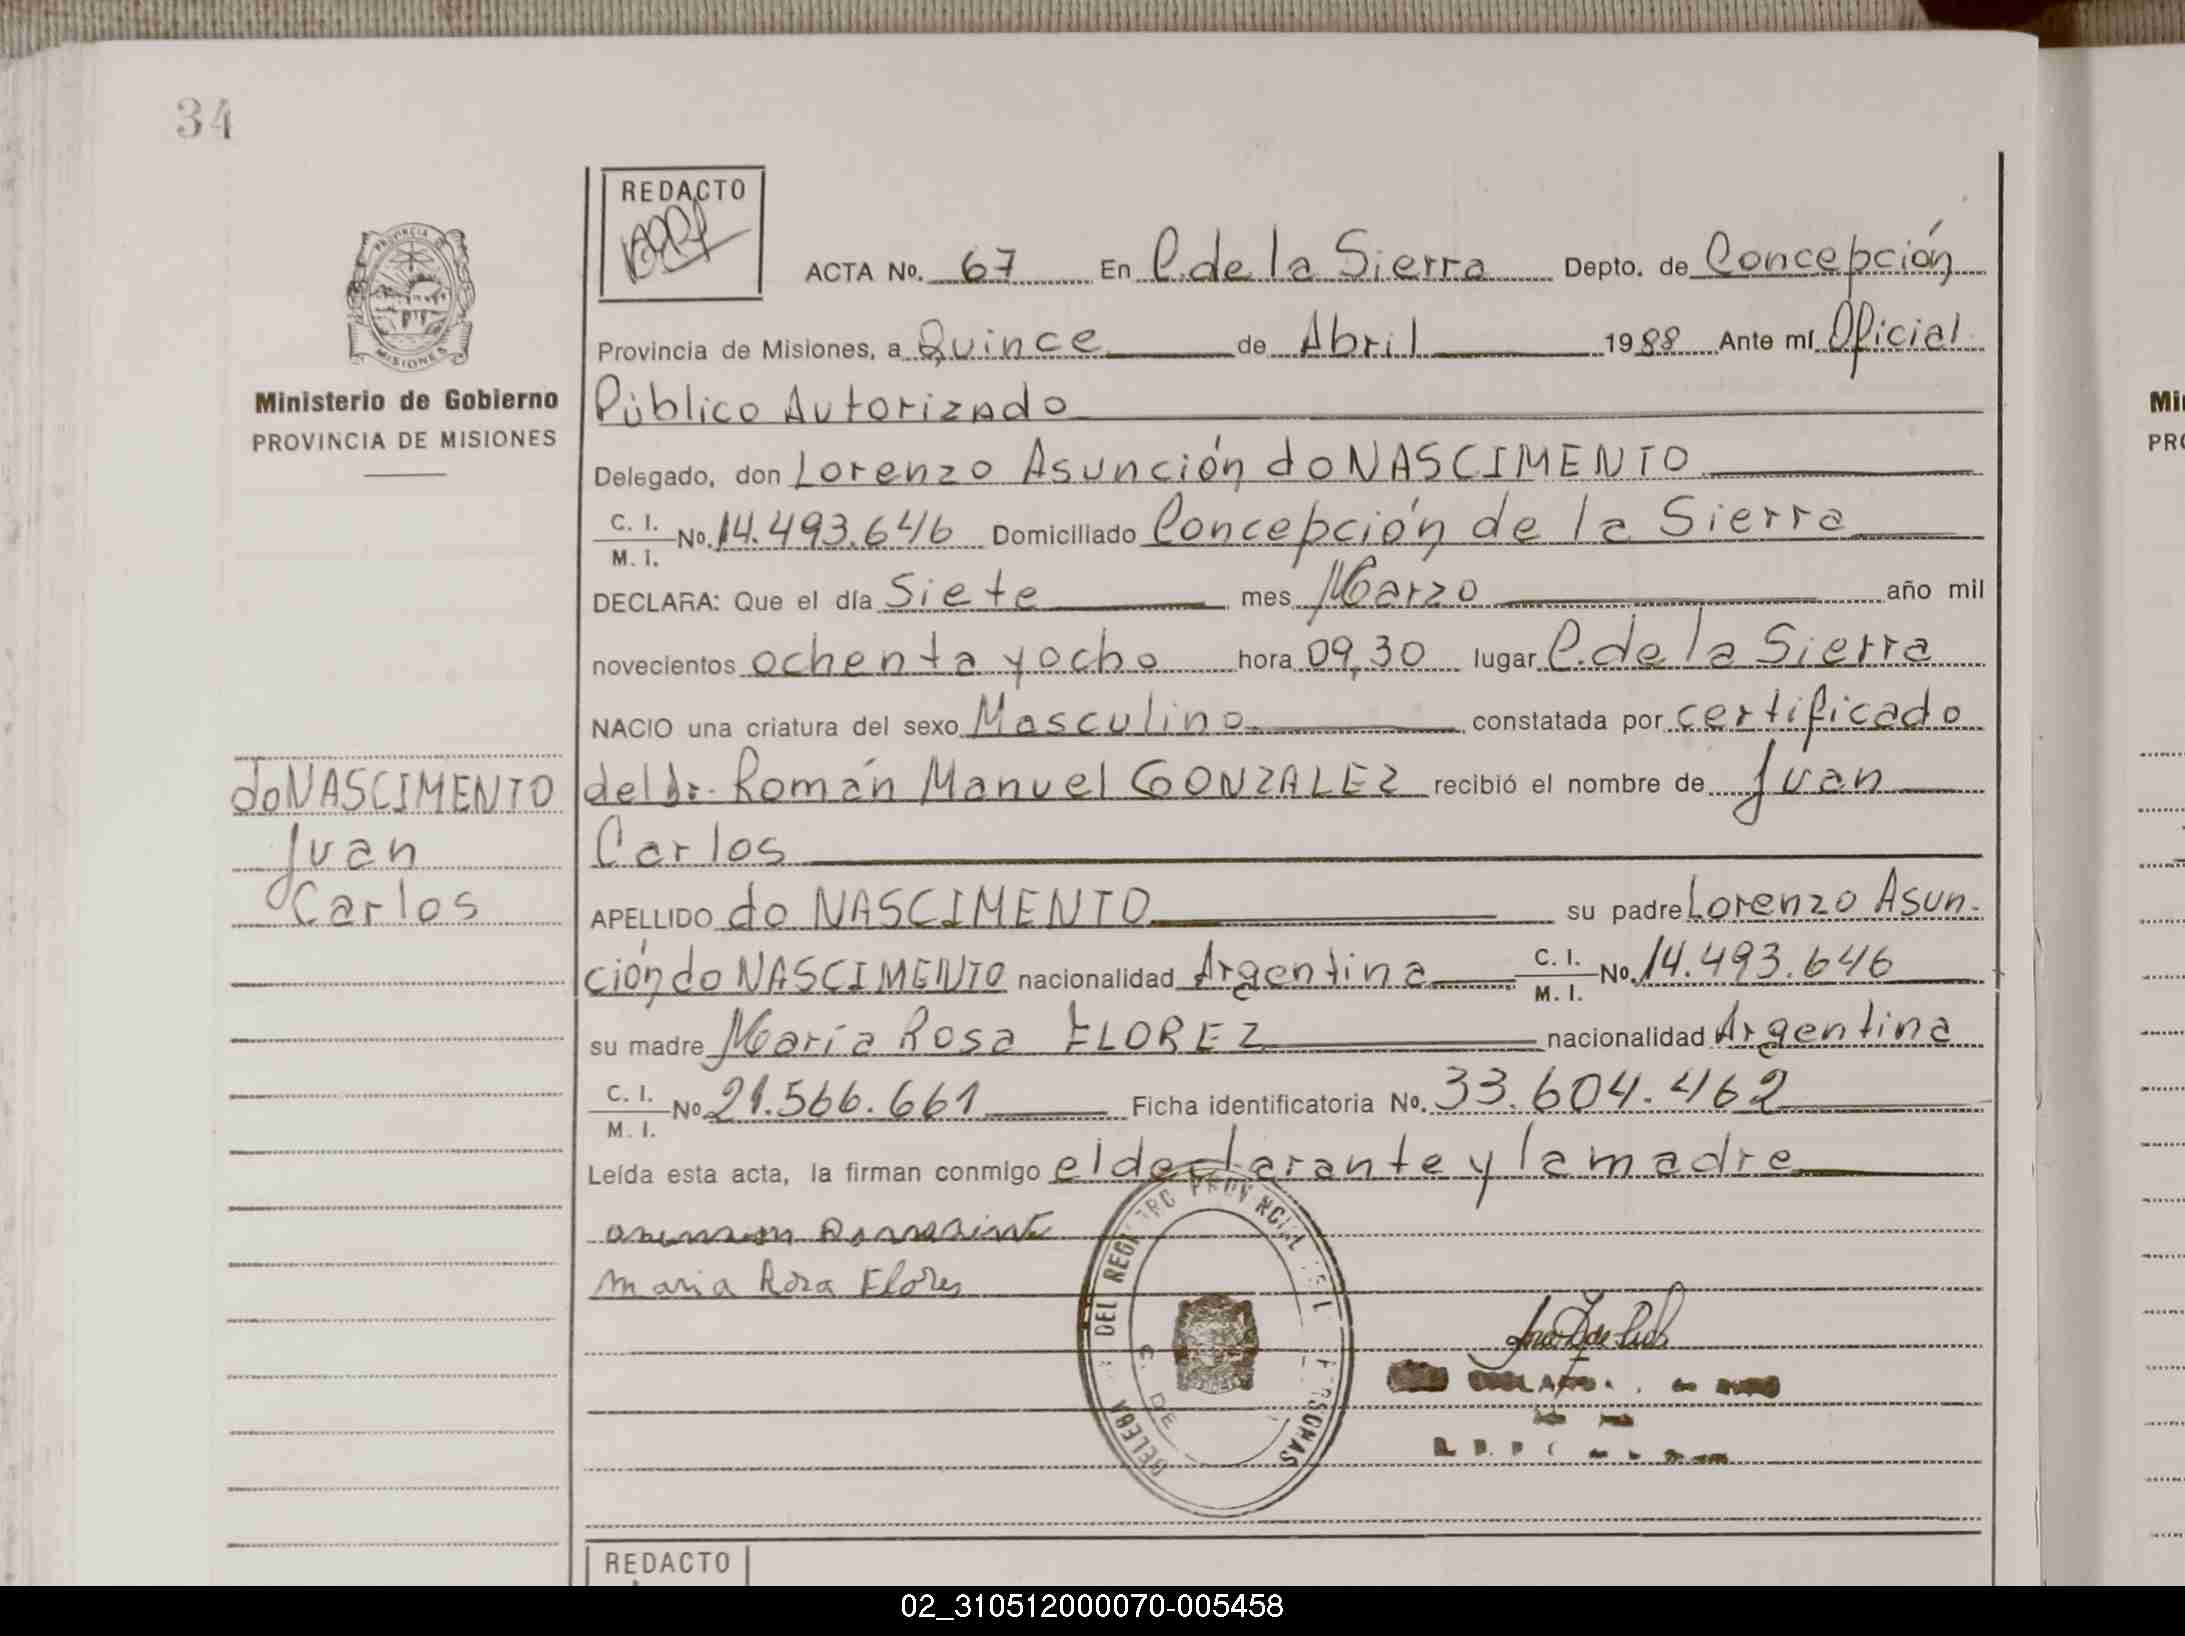 34
REDACTO
PROVINCIA DE
MISIONES
Ministerio de Gobierno
PROVINCIA DE MISIONES
ACTA No. 67 En C. de la Sierra Depto. de Concepción
Provincia de Misiones, a Quince de Abril 1988 Ante mí Oficial
Público Autorizado
Delegado, don Lorenzo Asunción do NASCIMENTO
C. I. M. I. No. 14.493.646 Domiciliado Concepción de la Sierra
DECLARA: Que el día Siete mes Marzo año mil
novecientos ochenta y ocho hora 09,30 lugar C. de la Sierra
NACIO una criatura del sexo Masculino constatada por certificado
del Dr. Román Manuel GONZALEZ recibió el nombre de Juan
Carlos
doNASCIMENTO
Juan
Carlos
APELLIDO do NASCIMENTO su padre Lorenzo Asun-
ción do NASCIMENTO nacionalidad Argentina C. I. M. I. No. 14.493.646
su madre María Rosa FLOREZ nacionalidad Argentina
C. I. M. I. No. 21.566.661 Ficha identificatoria No. 33.604.462
Leída esta acta, la firman conmigo el declarante y la madre
Maria Rosa Flores
DEL REGISTRO PROVINCIAL DE PERSONAS
C. DE
REDACTO
Mi
PRO
02_310512000070-005458